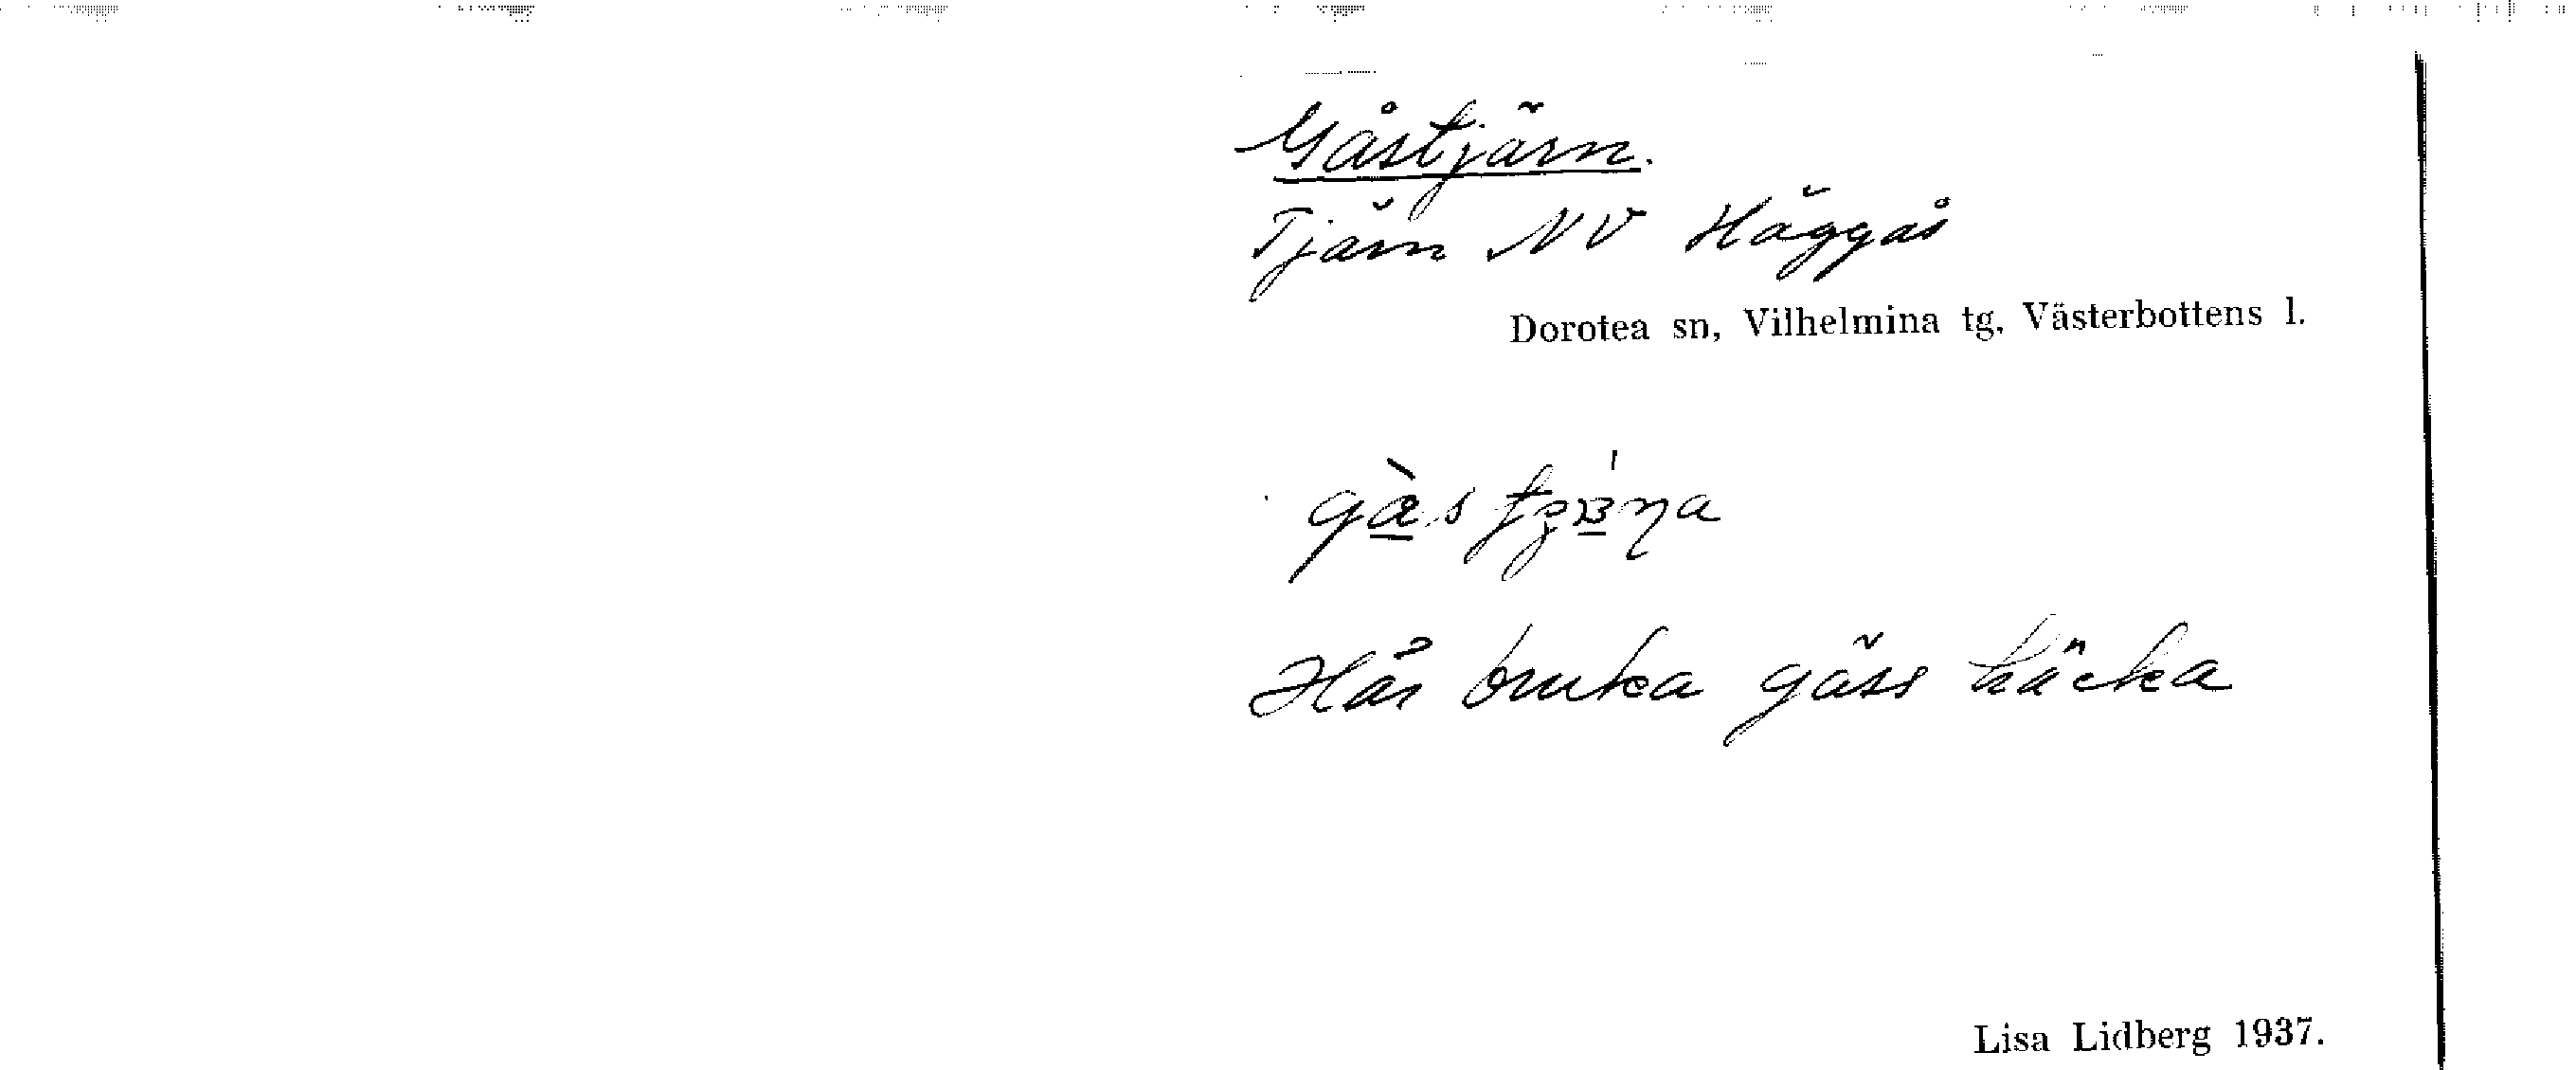 Gåstjärn.
Tjärn NV Häggås
Dorotea sn, Vilhelmina tg, Västerbottens l.
Här bruka gäss häcka
Lisa Lidberg 1937.